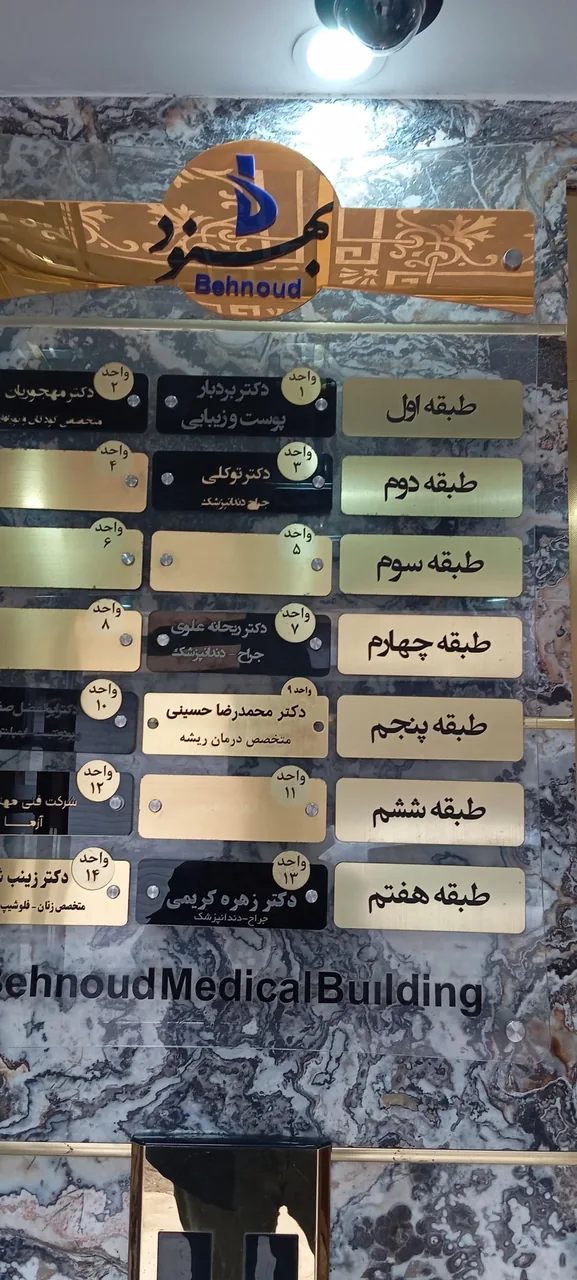 بهنود
Behnoud
طبقه اول
واحد ۱
دکتر بردبار
پوست و زیبایی
واحد ۲
دکتر مهجوریان
متخصص کودکان و
طبقه دوم
واحد ۳
دکتر توکلی
جراح دندانپزشک
واحد ۴
طبقه سوم
واحد ۵
واحد ۶
طبقه چهارم
واحد ۷
دکتر ریحانه علوی
جراح - دندانپزشک
واحد ۸
طبقه پنجم
واحد ۹
دکتر محمدرضا حسینی
متخصص درمان ریشه
واحد ۱۰
طبقه ششم
واحد ۱۱
واحد ۱۲
شرکت فنی
آزما
طبقه هفتم
واحد ۱۳
دکتر زهره کریمی
جراح-دندانپزشک
واحد ۱۴
دکتر زینب
متخصص زنان - فلوشیپ
Behnoud Medical Building